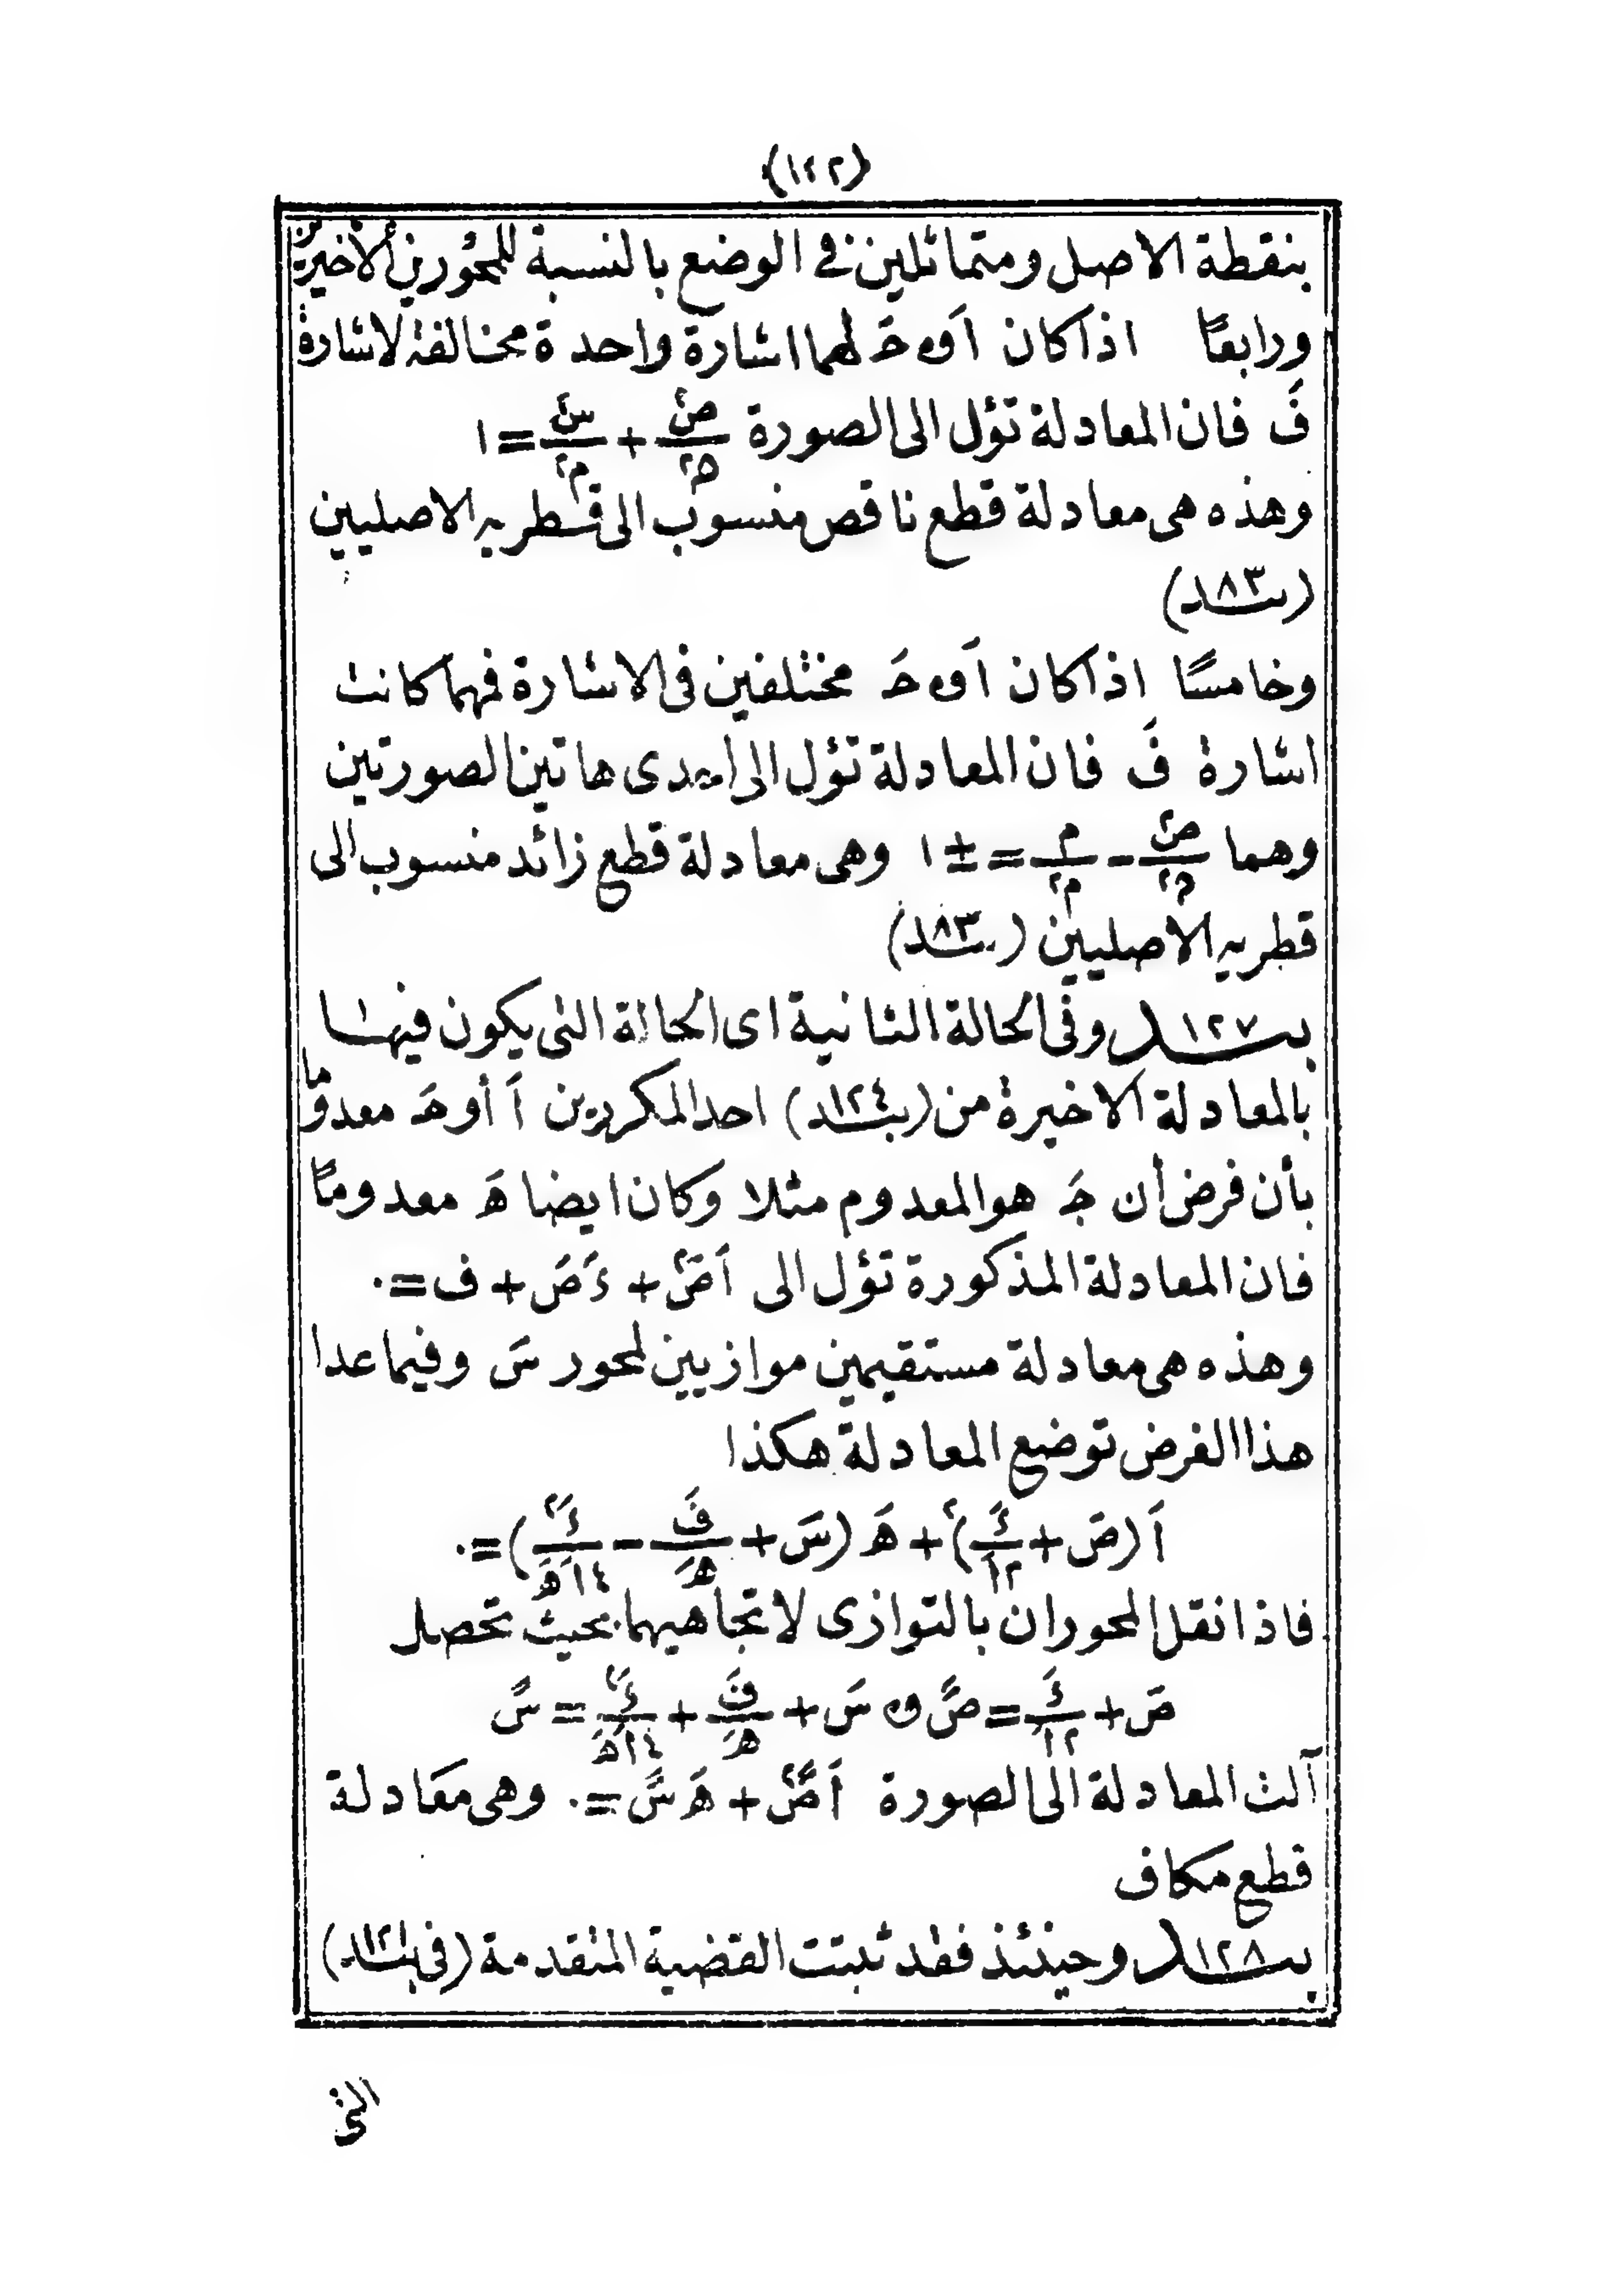 (١٤٢)
بنقطة الاصل ومتماثلين فى الوضع بالنسبة للمحورين الاخيرين
ورابعًا اذا كان اَ و حَ لهما اشارة واحدة مخالفة لاشارة
فَ فان المعادلة تؤل الى الصورة ص٢/ن٢ + س٢/م٢ = ١
وهذه هى معادلة قطع ناقص منسوب الى قطريه الاصليين
(بند ٨٣)
وخامسًا اذا كان اَ و حَ مختلفين فى الاشارة فمهما كانت
اشارة فَ فان المعادلة تؤل الى احدى هاتين الصورتين
وهما ص٢/ن٢ - م٢/م٢ = ± ١ وهى معادلة قطع زائد منسوب الى
قطريه الاصليين (بند ٨٣)
بند ١٢٧ وفى الحالة الثانية اى الحالة التى يكون فيها
بالمعادلة الاخيرة من (بند ١٢٤) احد المكررين اَ أو حَ معدوما
بأن فرض أن جَ هو المعدوم مثلا وكان ايضا هَ معدومًا
فان المعادلة المذكورة تؤل الى اَ صَ٢ + ءَ صَ + ف = ٠
وهذه هى معادلة مستقيمين موازيين لمحور سَ وفيما عدا
هذا الفرض توضع المعادلة هكذا
اَ (صَ + ءَ/٢اَ)٢ + هَ (سَ + فَ/هَ - ءَ٢/٤اَهَ) = ٠
فاذا نقل المحوران بالتوازى لاتجاهيهما بحيث تحصل
صَ + ءَ/٢اَ = صً و سَ + فَ/هَ + ءَ٢/٤اَهَ = سً
آلت المعادلة الى الصورة اَ صً٢ + هَ سً = ٠ وهى معادلة
قطع مكاف
بند ١٢٨ وحينئذ فقد ثبتت القضية المتقدمة (فى بند ١٢١)
التى